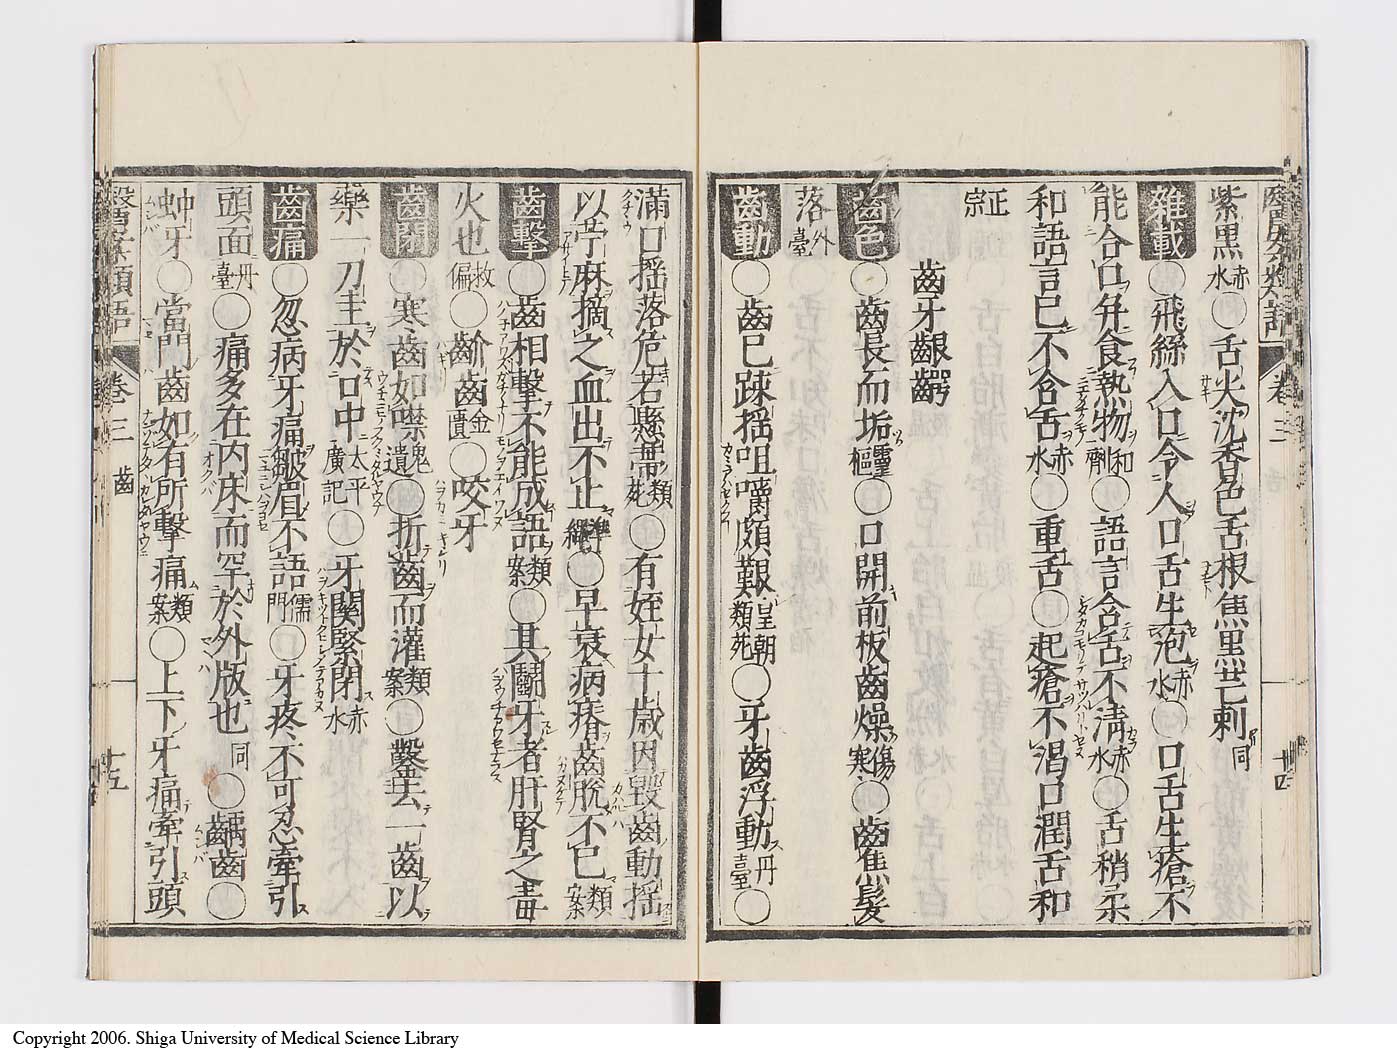 紫黒赤水○舌尖沈香色舌根焦黒芒刺同
雜載○飛絲入口令人口舌生泡赤水○口舌生瘡不
能合口并食熱物和劑○語言含舌不清赤水○舌稍柔
和語言已不含舌赤水○重舌○起瘡不渇口潤舌和
正宗
齒牙齦齶
齒色○齒長而垢靈樞○口開前板齒燥傷寒○齒焦髮
落外臺
齒動○齒已踈揺咀嚼頗艱皇朝類苑○牙齒浮動丹臺○
滿口揺落危若懸蔕類苑○有姪女十歳因毀齒動揺
以苧麻摘之血出不止準繩○早衰病瘠齒脫不已類案
齒擊○齒相擊不能成語類案○其鬭牙者肝腎之毒
火也救偏○齘齒金匱○咬牙
齒閉○寒齒如噤鬼遺○折齒而灌類案○鑿去一齒以
藥一刀圭於口中太平廣記○牙關緊閉赤水
齒痛○忽病牙痛皺眉不語儒門○牙疼不可忍牽引
頭面丹臺○痛多在内床而罕於外版也同○齲齒○
蚛牙○當門齒如有所擊痛類案○上下牙痛牽引頭
卷三 齒 十五
卷三 舌 十四
Copyright 2006. Shiga University of Medical Science Library